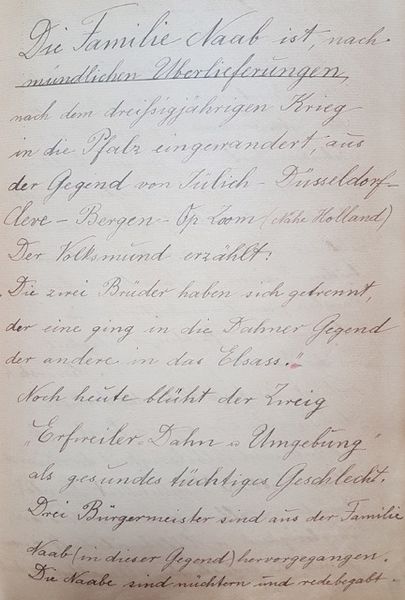 Die Familie Naab ist, nach
mündlichen Überlieferungen,
nach dem dreißigjährigen Krieg
in die Pfalz eingewandert, aus
der Gegend von Jülich - Düsseldorf-
Cleve - Bergen - Op Zoom (Nähe Holland)
Der Volksmund erzählt:
Die zwei Brüder haben sich getrennt,
der eine ging in die Dahner Gegend
der andere in das Elsass."
Noch heute blüht der Zweig
„Erfweiler Dahn u Umgebung"
als gesundes tüchtiges Geschlecht.
Drei Bürgermeister sind aus der Familie
Naab (in dieser Gegend) hervorgegangen.
Die Naabe sind nüchtern und redebegabt.